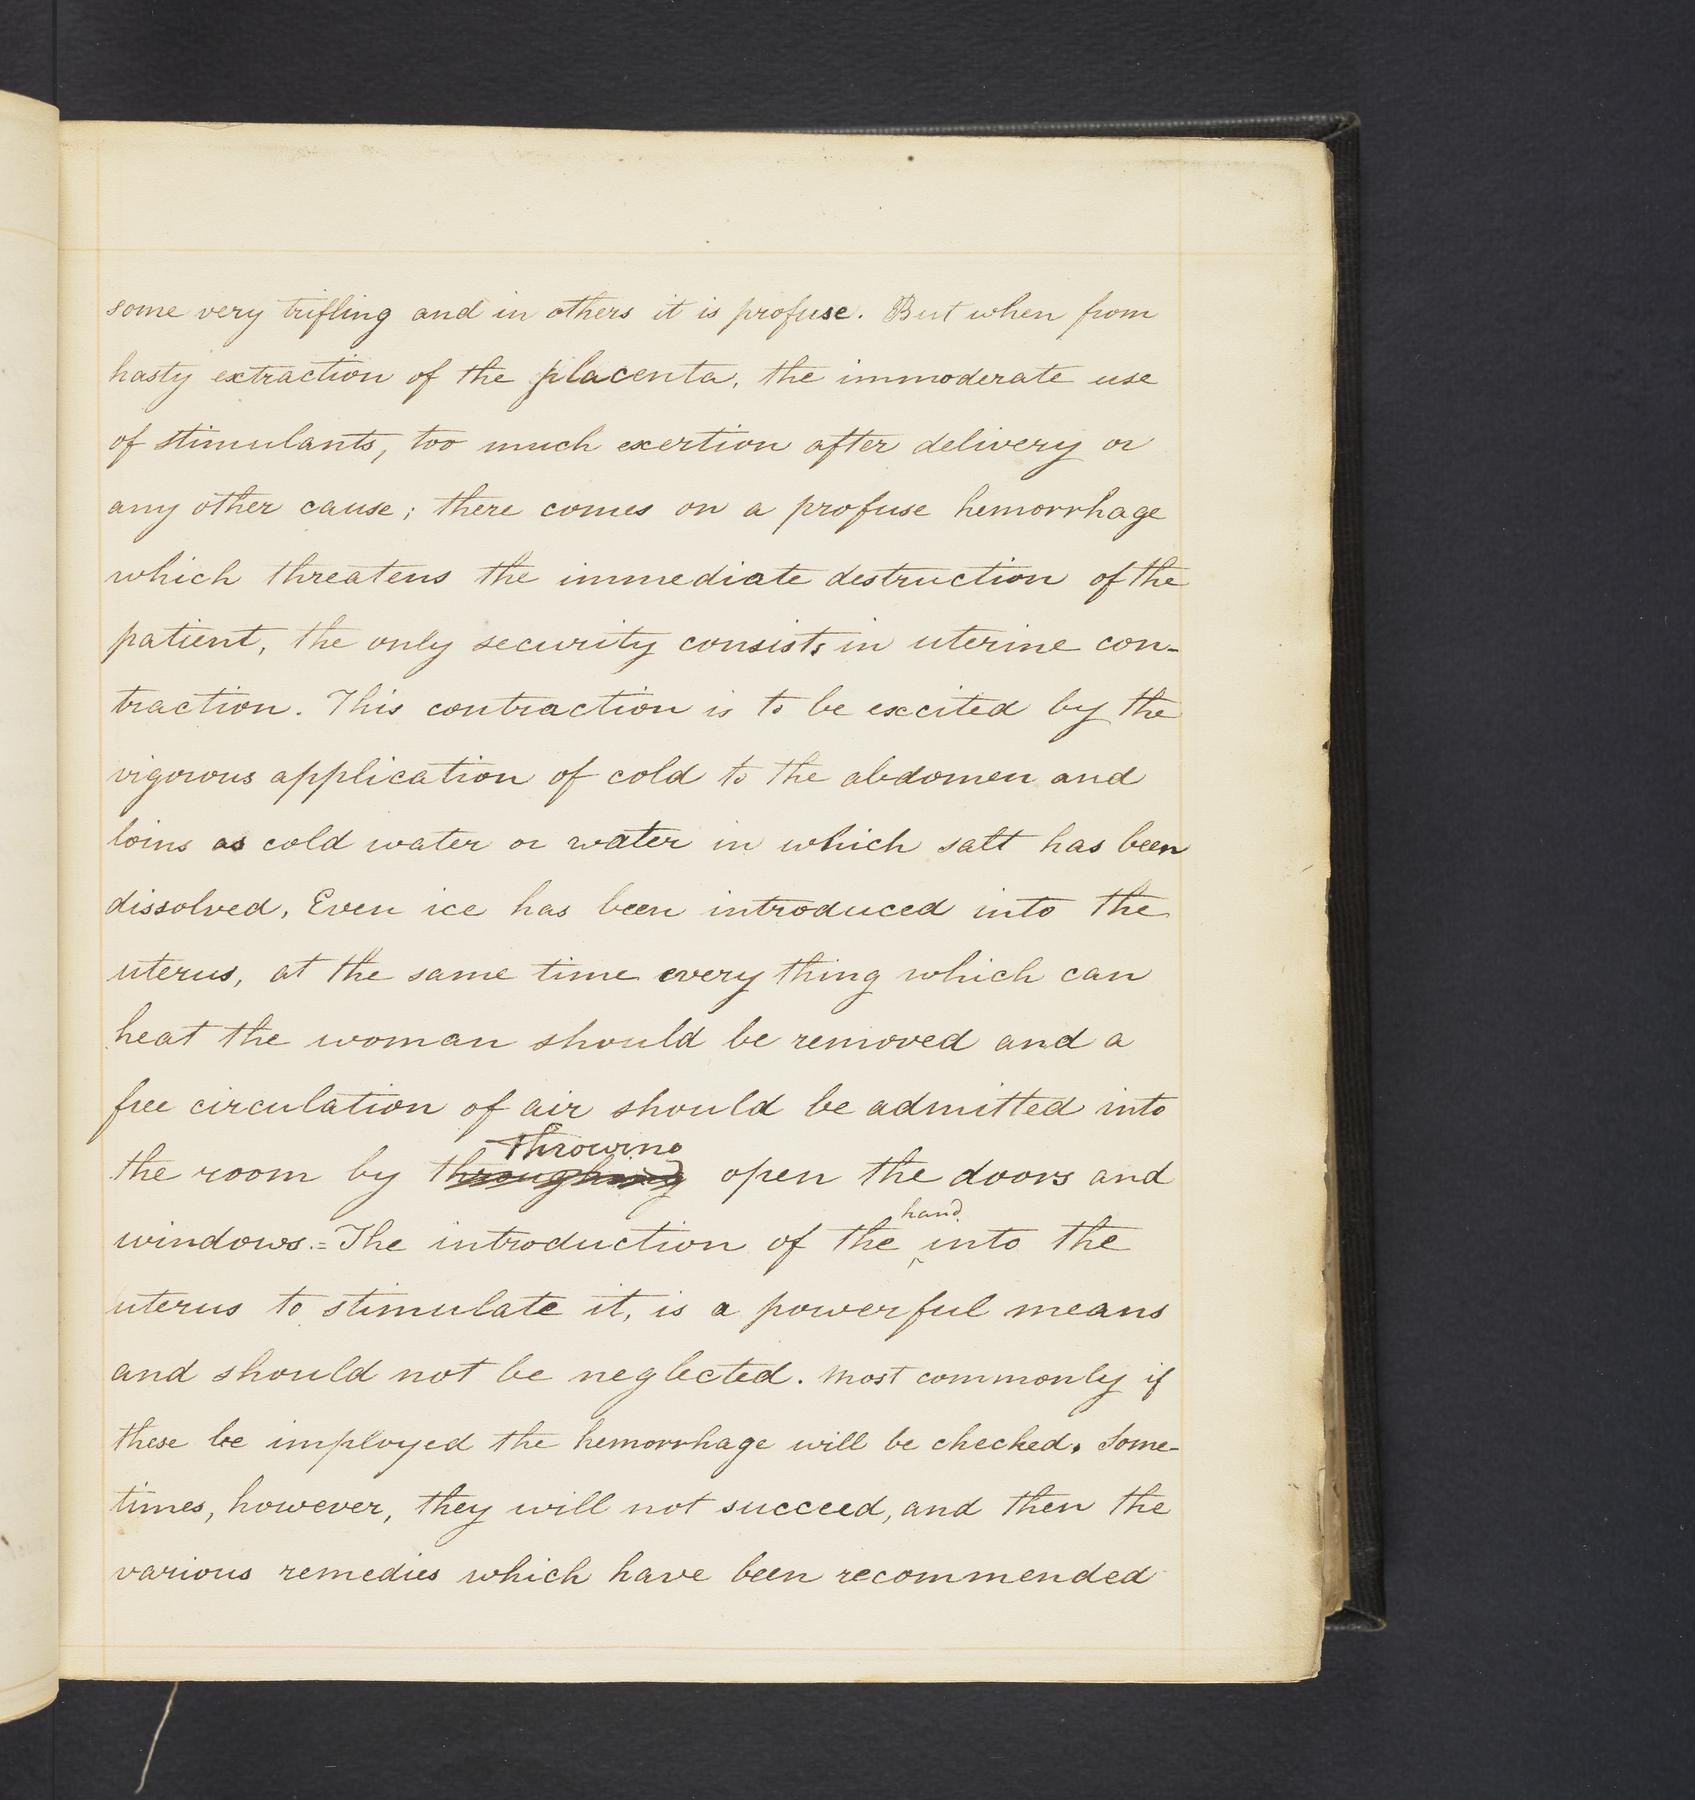 some very trifling and in others it is profuse. But when from
hasty extraction of the placenta, the immoderate use
of stimulants, too much exertion after delivery or
any other cause; there comes on a profuse hemorrhage
which threatens the immediate destruction of the
patient, the only security consists in uterine con-
traction. This contraction is to be excited by the
vigorous application of cold to the abdomen and
loins as cold water or water in which salt has been
dissolved, Even ice has been introduced into the
uterus, at the same time every thing which can
heat the woman should be removed and a
free circulation of air should be admitted into
throwing
the room by throughing open the doors and
hand
windows.= The introduction of the into the
uterus to stimulate it, is a powerful means
and should not be neglected. Most commonly if
these be imployed the hemorrhage will be checked. Some-
times, however, they will not succeed, and then the
various remedies which have been recommended